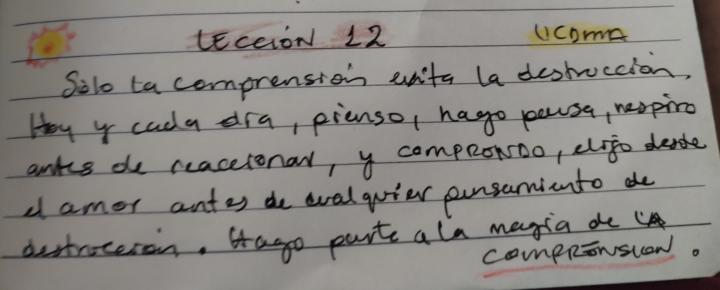 LECCIÓN 12 UCDMA
Sólo la comprensión evita la destrucción.
Hoy y cada día, pienso, hago pausa, respiro
antes de reaccionar, y comprendo, elijo desde
el amor antes de cualquier pensamiento de
destrucción. Hago parte a la magia de LA
COMPRENSION.